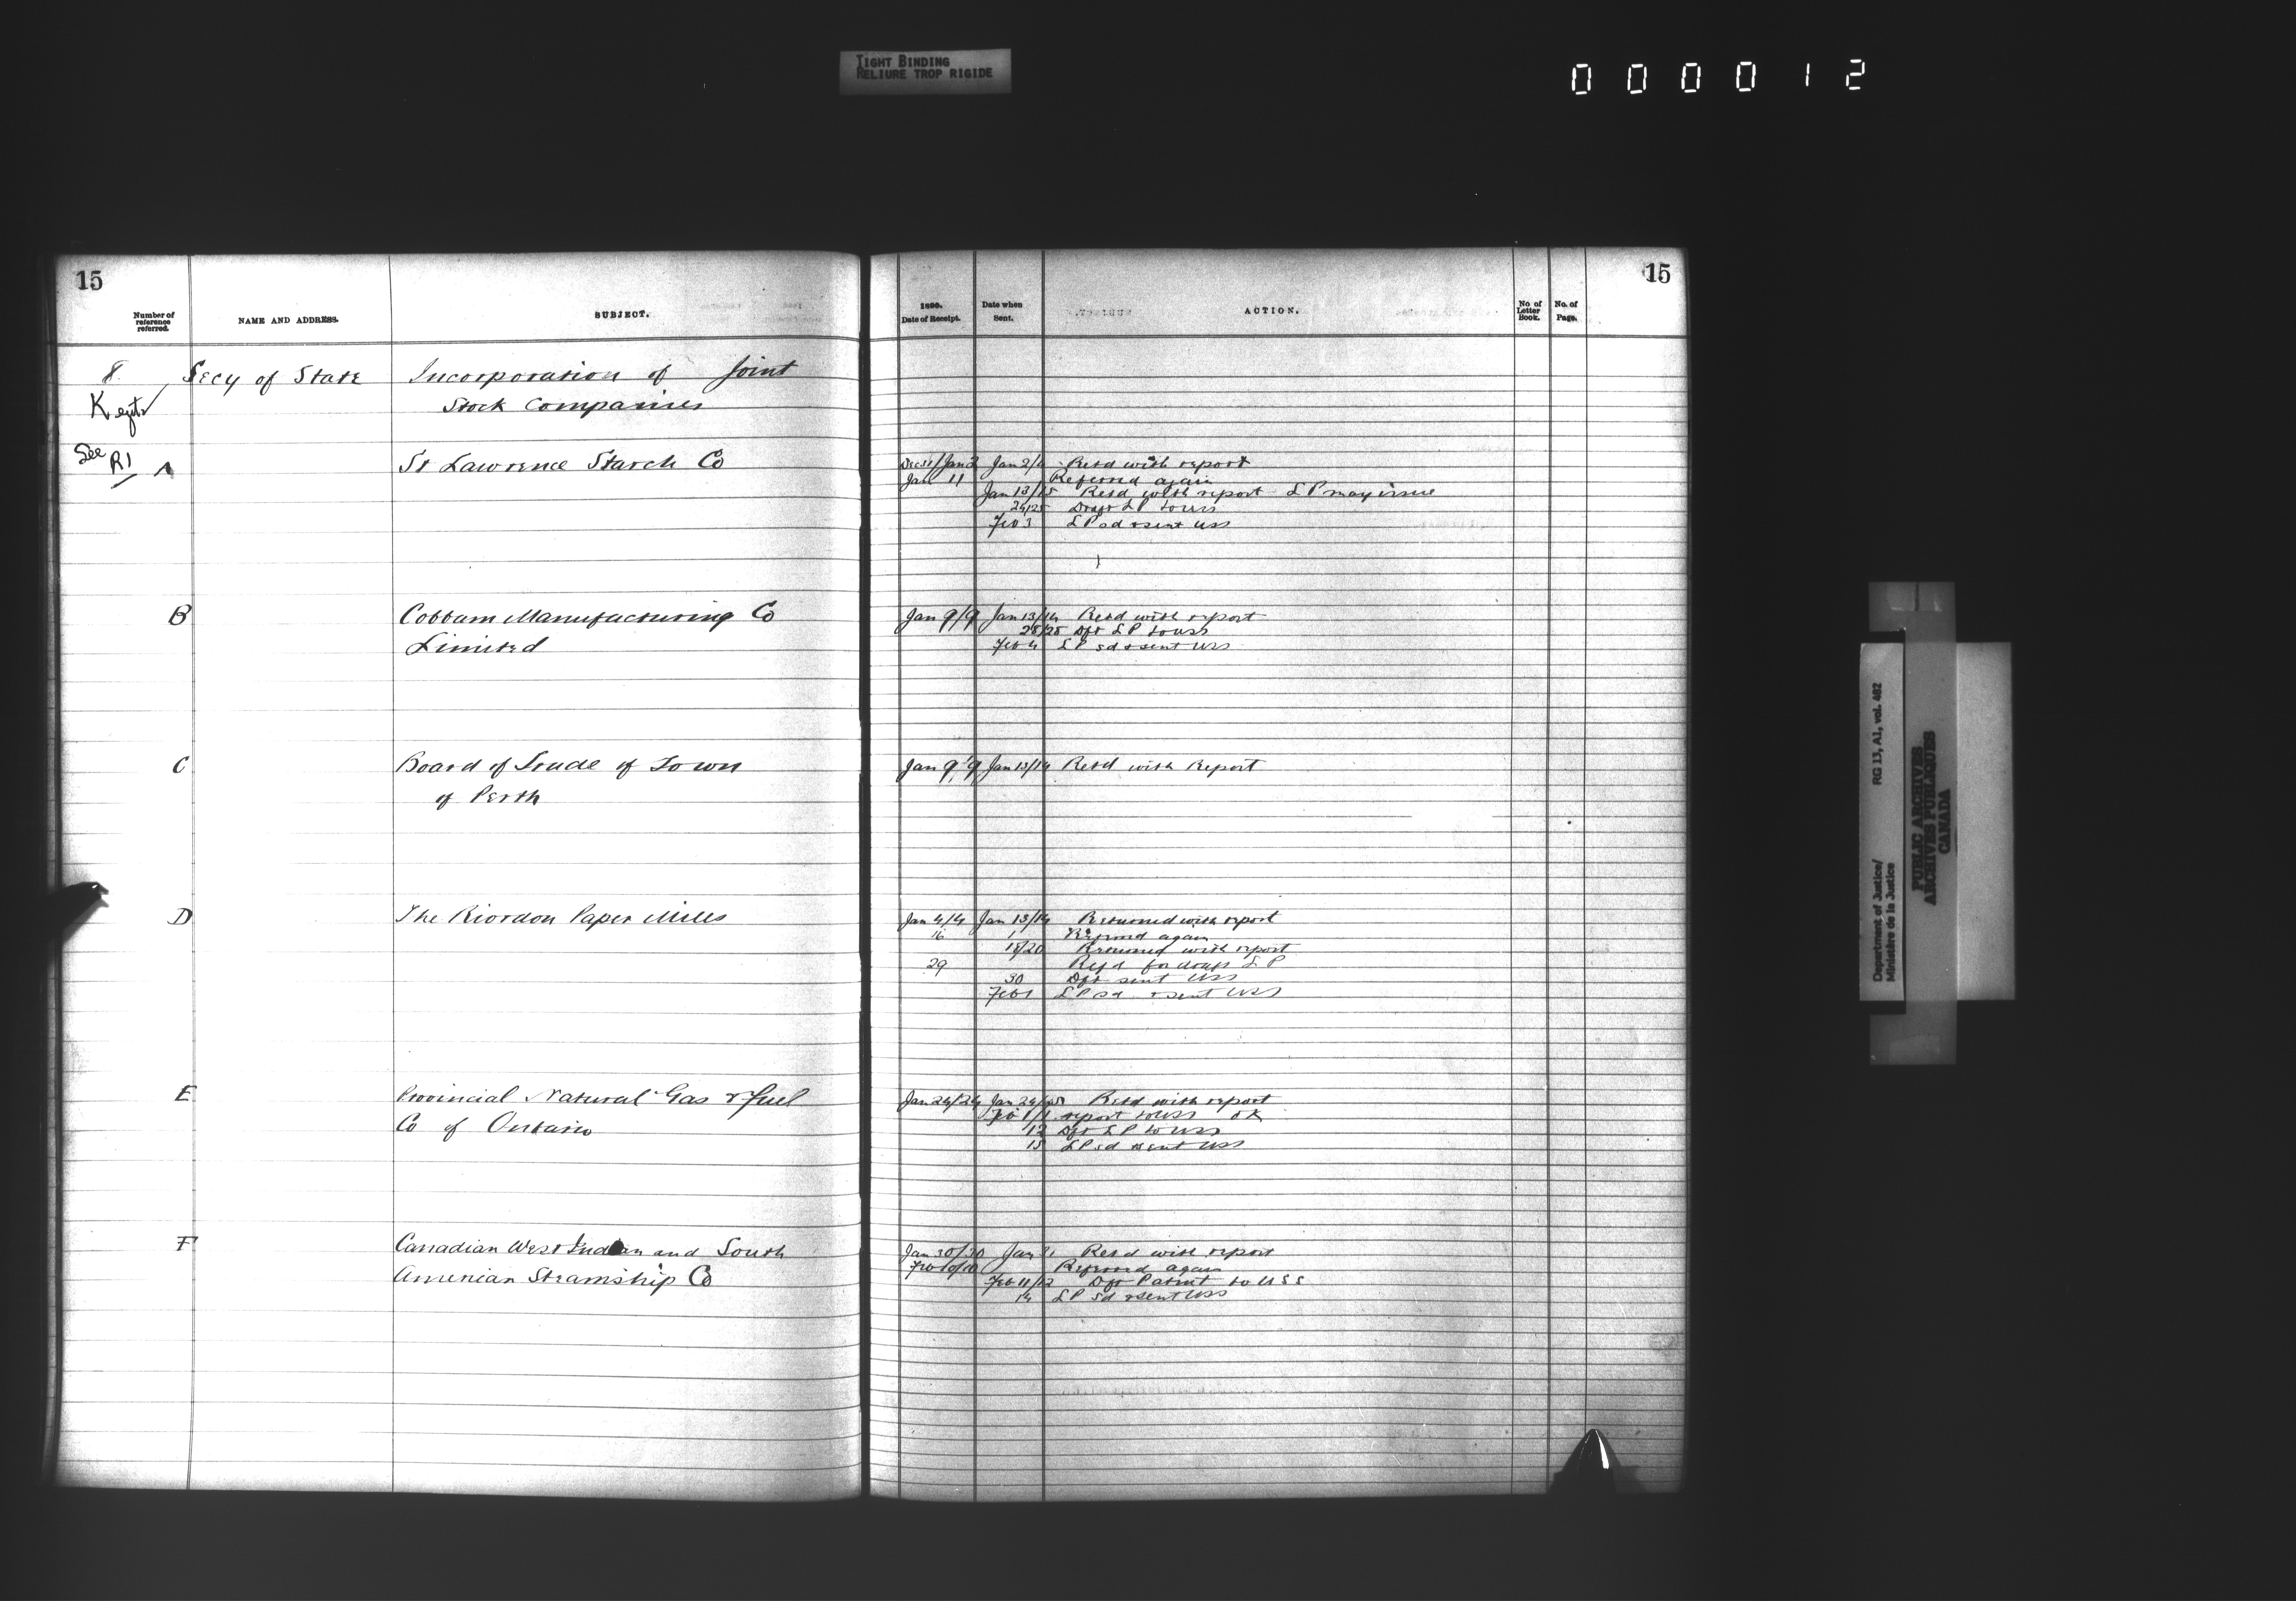 TIGHT BINDING
RELIURE TROP RIGIDE
000012
15
Number of reference referred.
NAME AND ADDRESS.
SUBJECT.
8 Secy of State Incorporation of Joint
Stock Companies
See R1 A St Lawrence Starch Co
B Cobbam Manufacturing Co
Limited
C Board of Trade of Town
of Perth
D The Riordon Paper Mills
E Provincial Natural Gas & Fuel
Co of Ontario
F Canadian West Indian and South
Amenian Steamship Co
15
1890.
Date of Receipt.
Date when Sent.
ACTION.
No. of Letter Book.
No. of Page.
Dec 31/Jan 2 Jan 2/4 Retd with report
Jan 11 Referred again
Jan 13/15 Retd with report L P may issue
24/25 Draft L P to uss
Feb 3 L P sd & sent uss
Jan 9/9 Jan 13/14 Retd with report
25/25 Dft L P to uss
Feb 4 L P sd & sent uss
Jan 9/9 Jan 13/14 Retd with Report
Jan 4/4 Jan 13/14 Returned with report
16 Referred again
18/20 Returned with report
29 Refd for draft L P
30 Dft sent uss
Feb 1 L P sd & sent uss
Jan 24/24 Jan 24/25 Retd with report
Feb 1/1 report to uss OK
12 Dft L P to uss
15 L P sd & sent uss
Jan 30/30 Jan 31 Retd with report
Feb 10/10 Referred again
Feb 11/12 Dft Patent to U S S
14 L P sd & sent uss
Department of Justice/ RG 13, A1, vol. 482
Ministère de la Justice
PUBLIC ARCHIVES
ARCHIVES PUBLIQUES
CANADA